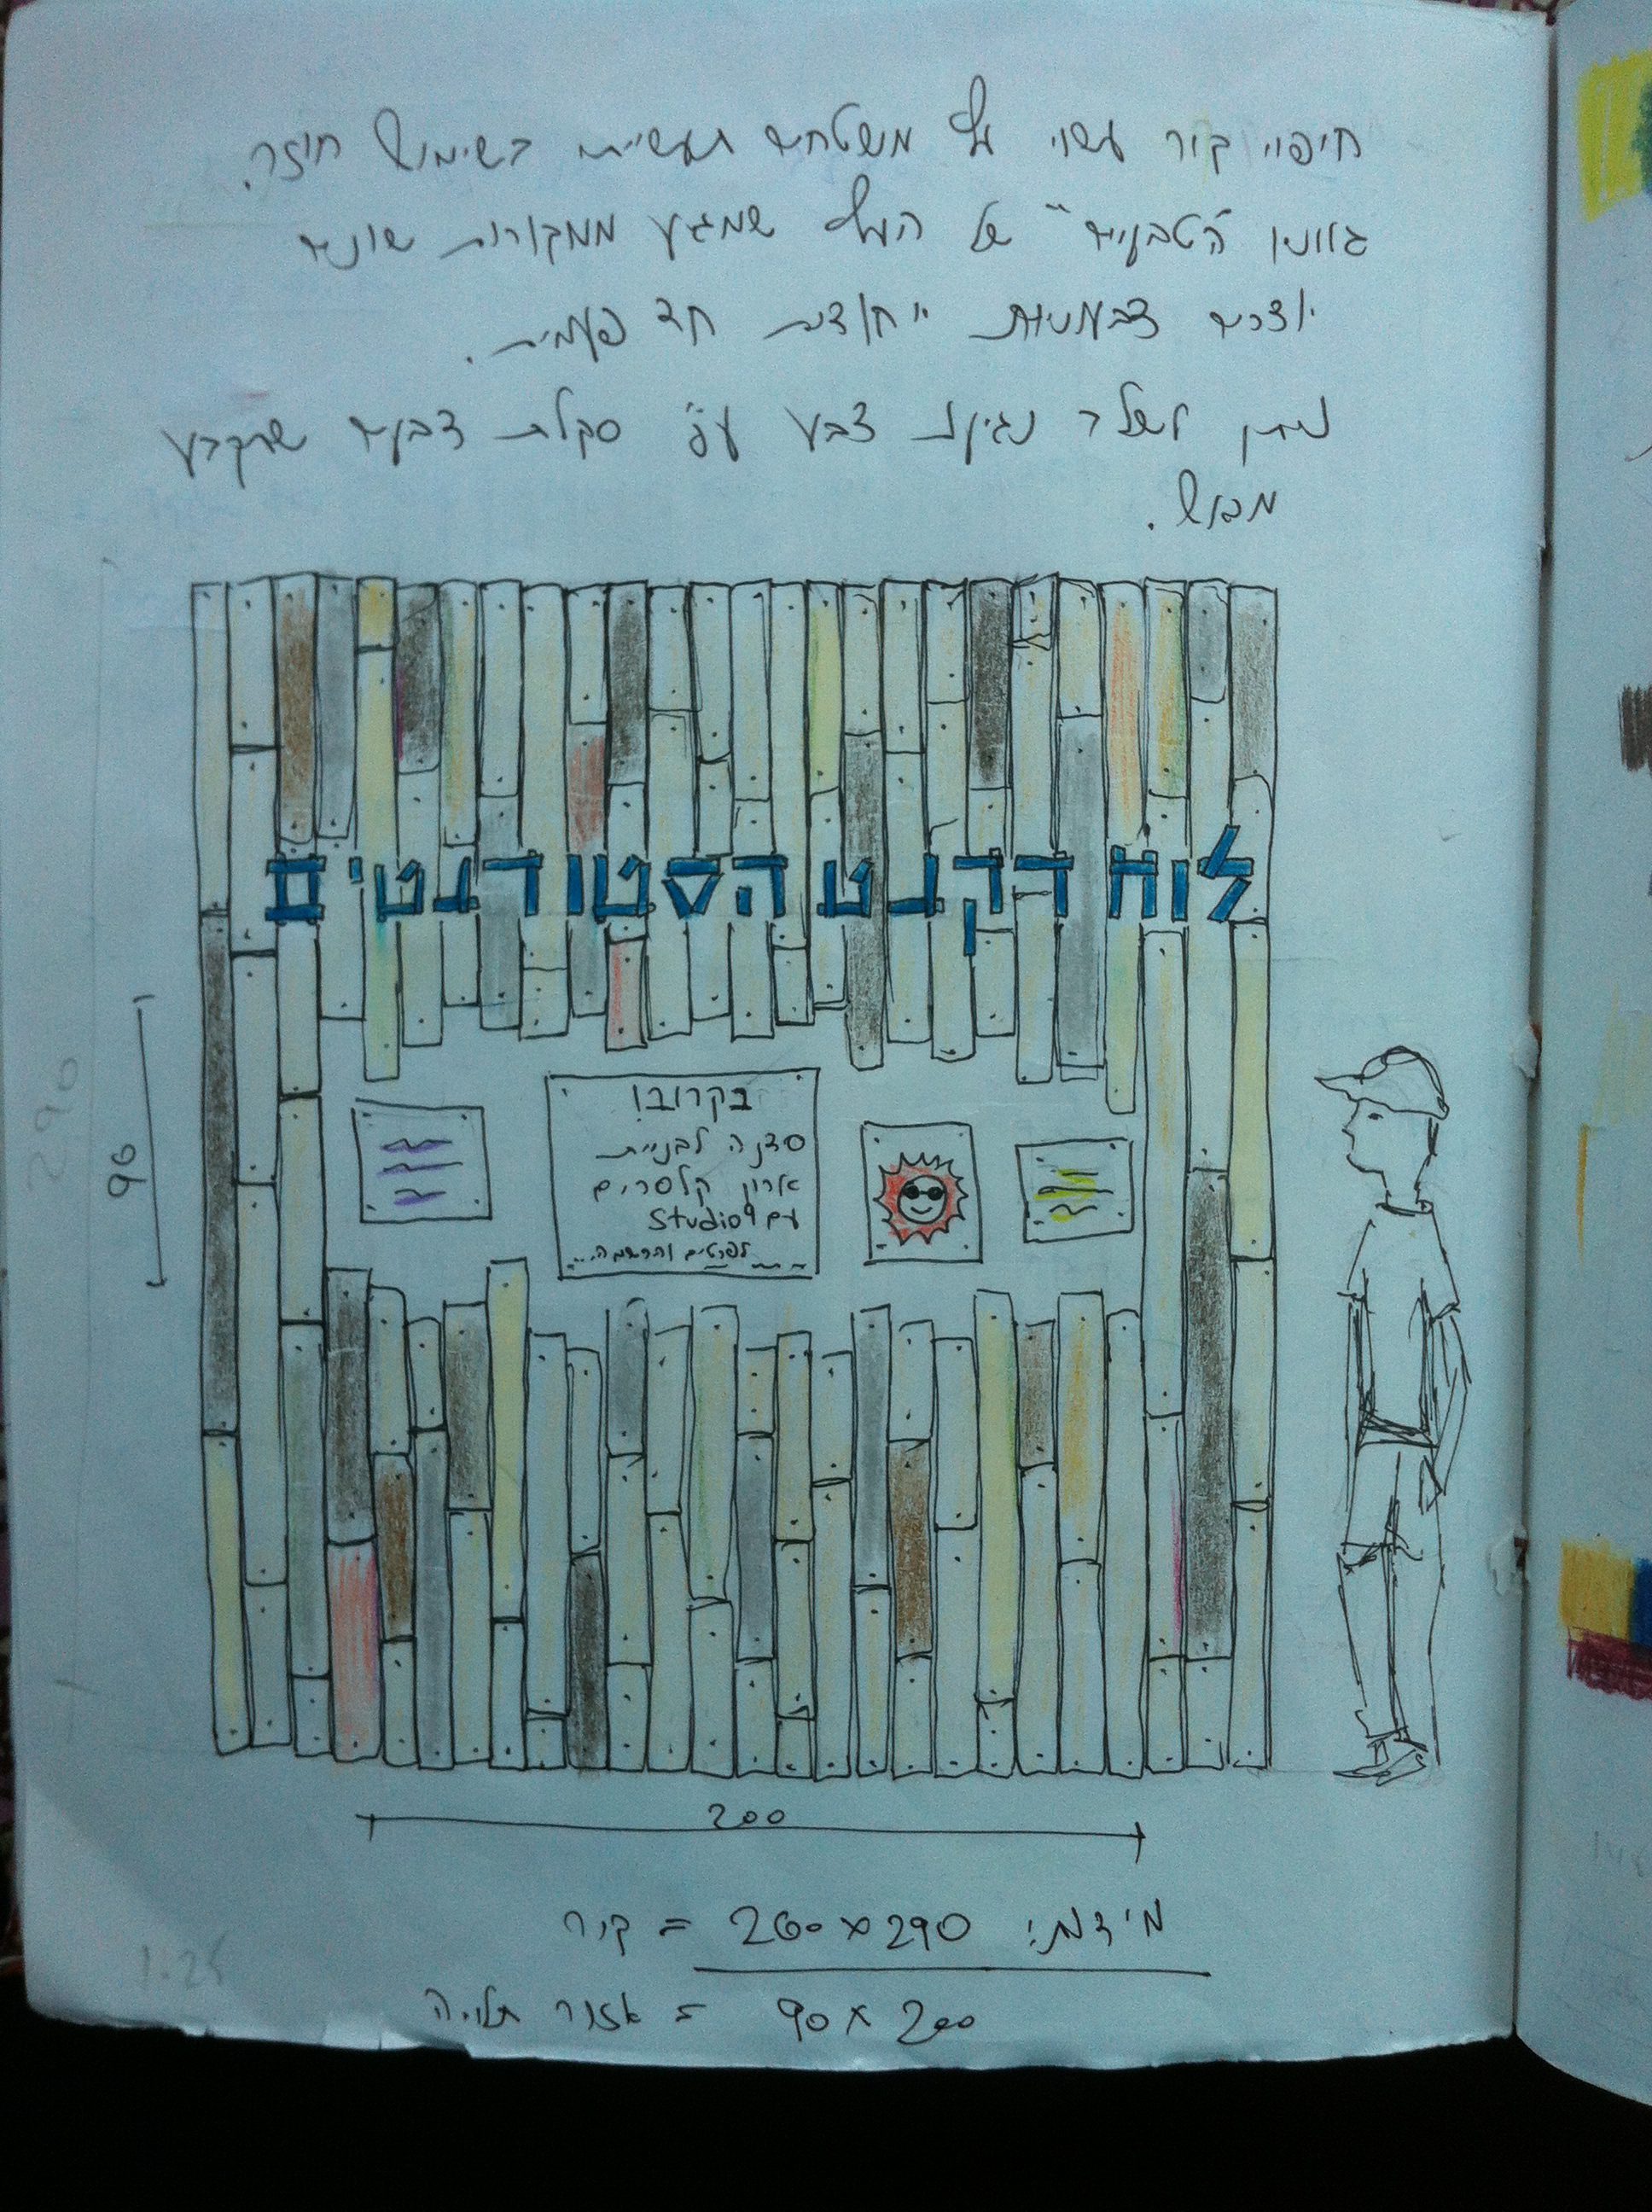 חיפוי קיר עשוי עץ משטחים תעשייתי בשימוש חוזר.
גוונים "הטבעיים" של העץ שמגיע ממקורות שונים
יוצרים צבעוניות ייחודית חד פעמית.
ניתן לשלב נגיעות צבע ע"פ סקלת צבעים שתקבע
מראש.
לוח דרקנט הסטודנטים
בקרוב!
סדנה לבניית
ארון קלסרים
עם Studio9
לפרטים והרשמה...
290
90
200
מידות: 260x290 = קיר
90x200 = אזור תלייה
1:25